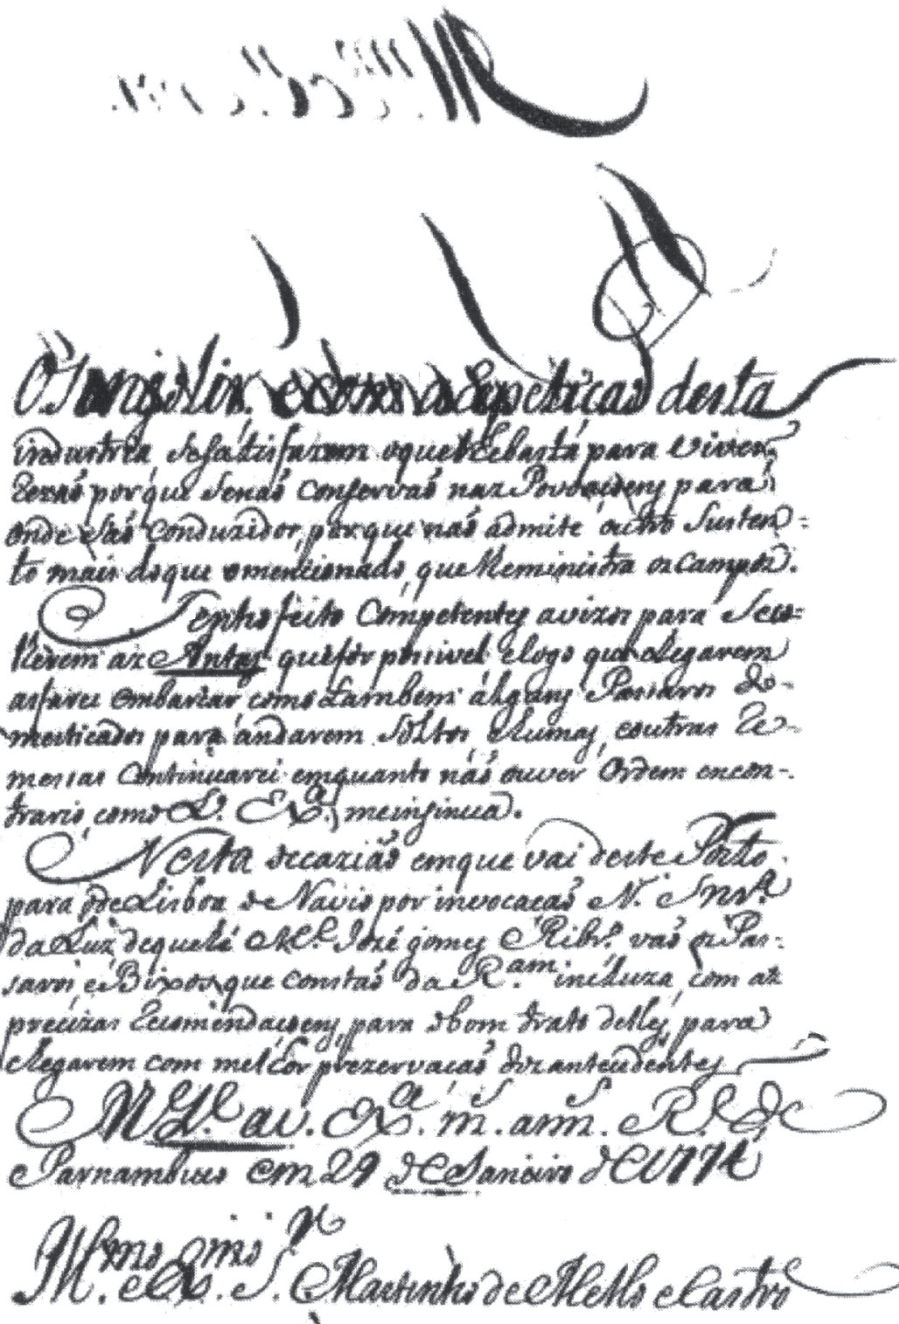 desta
industria se satisfazem o que lhe basta para viverem,
e nas Povoaçoens para
onde saõ conduzidos, porque naõ admite outro susten=
to mais do que o mencionado, que lhe ministra os campos.
Tenho feito Competentes avizos para se co=
lherem as Antas que for possivel e logo que chegarem
as farei embarcar como tambem alguns Passaros do-
mesticados para andarem soltos, e humas, e outras Re-
messas Continuarei emquanto naõ ouver Ordem encon-
trario, como V. Exª. me insinua.
Nesta occaziaõ em que vai deste Porto
para o de Lisboa o Navio por invocaçaõ N. Snrª.
da Luz de que hé M.e José gomes Ribr.o vaõ os Pas-
saros e Bixos, que constaõ da R.am incluza, com as
precizas Recomendaçoens, para o bom trato delles, para
chegarem com melhor prezervaçaõ dos antecedentes
D.s g.de a V. Exª. m.s ann.s R.e de
Parnambuco em 29 de Janeiro de 1774
Ill.mo e Ex.mo S.r Martinho de Mello e Castro